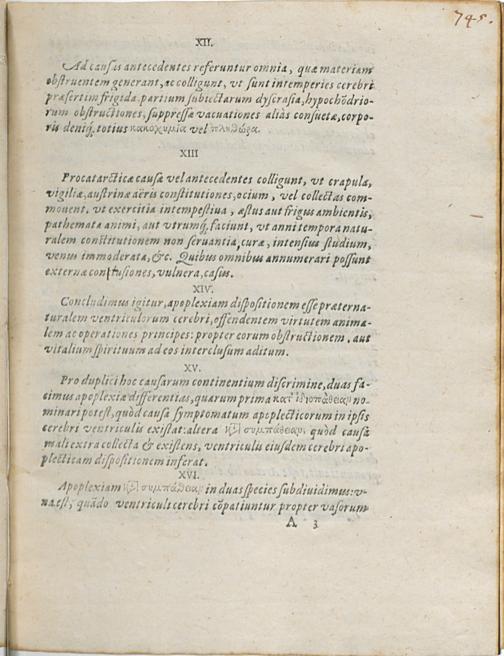 745.
XII.
Ad causas antecedentes referuntur omnia, quæ materiam
obstruentem generant, ac colligunt, vt sunt intemperies cerebri
præsertim frigida. partium subiectarum dyscrasia, hypochōdrio-
rum obstructiones, suppressæ vacuationes aliàs consuetæ, corpo-
ris deniq; totius κακοχυμία vel πληθώρα.
XIII
Procatarcticæ causæ vel antecedentes colligunt, vt crapula,
vigiliæ, austrinæ aëris constitutiones, ocium, vel collectas com-
mouent, vt exercitia intempestiua, æstus aut frigus ambientis,
pathemata animi, aut vtrumq; faciunt, vt anni tempora natu-
ralem constitutionem non seruantia, curæ, intensius studium,
venus immoderata, &c. Quibus omnibus annumerari possunt
externæ contusiones, vulnera, casus.
XIV.
Concludimus igitur, apoplexiam dispositionem esse præterna-
turalem ventriculorum cerebri, offendentem virtutem anima-
lem ac operationes principes: propter eorum obstructionem, aut
vitalium spirituum ad eos interclusum aditum.
XV.
Pro duplici hoc causarum continentium discrimine, duas fa-
cimus apoplexiæ differentias, quarum prima κατ' ἰδιοπάθειαν no-
minari potest, quòd causa symptomatum apoplecticorum in ipsis
cerebri ventriculis existat: altera κτ συμπάθειαν, quòd causa
mali extra collecta & existens, ventriculis eiusdem cerebri apo-
plecticam dispositionem inferat.
XVI.
Apoplexiam κτ συμπάθειαν in duas species subdiuidimus: v-
na est, quādo ventriculi cerebri cōpatiuntur propter vasorum
A 3